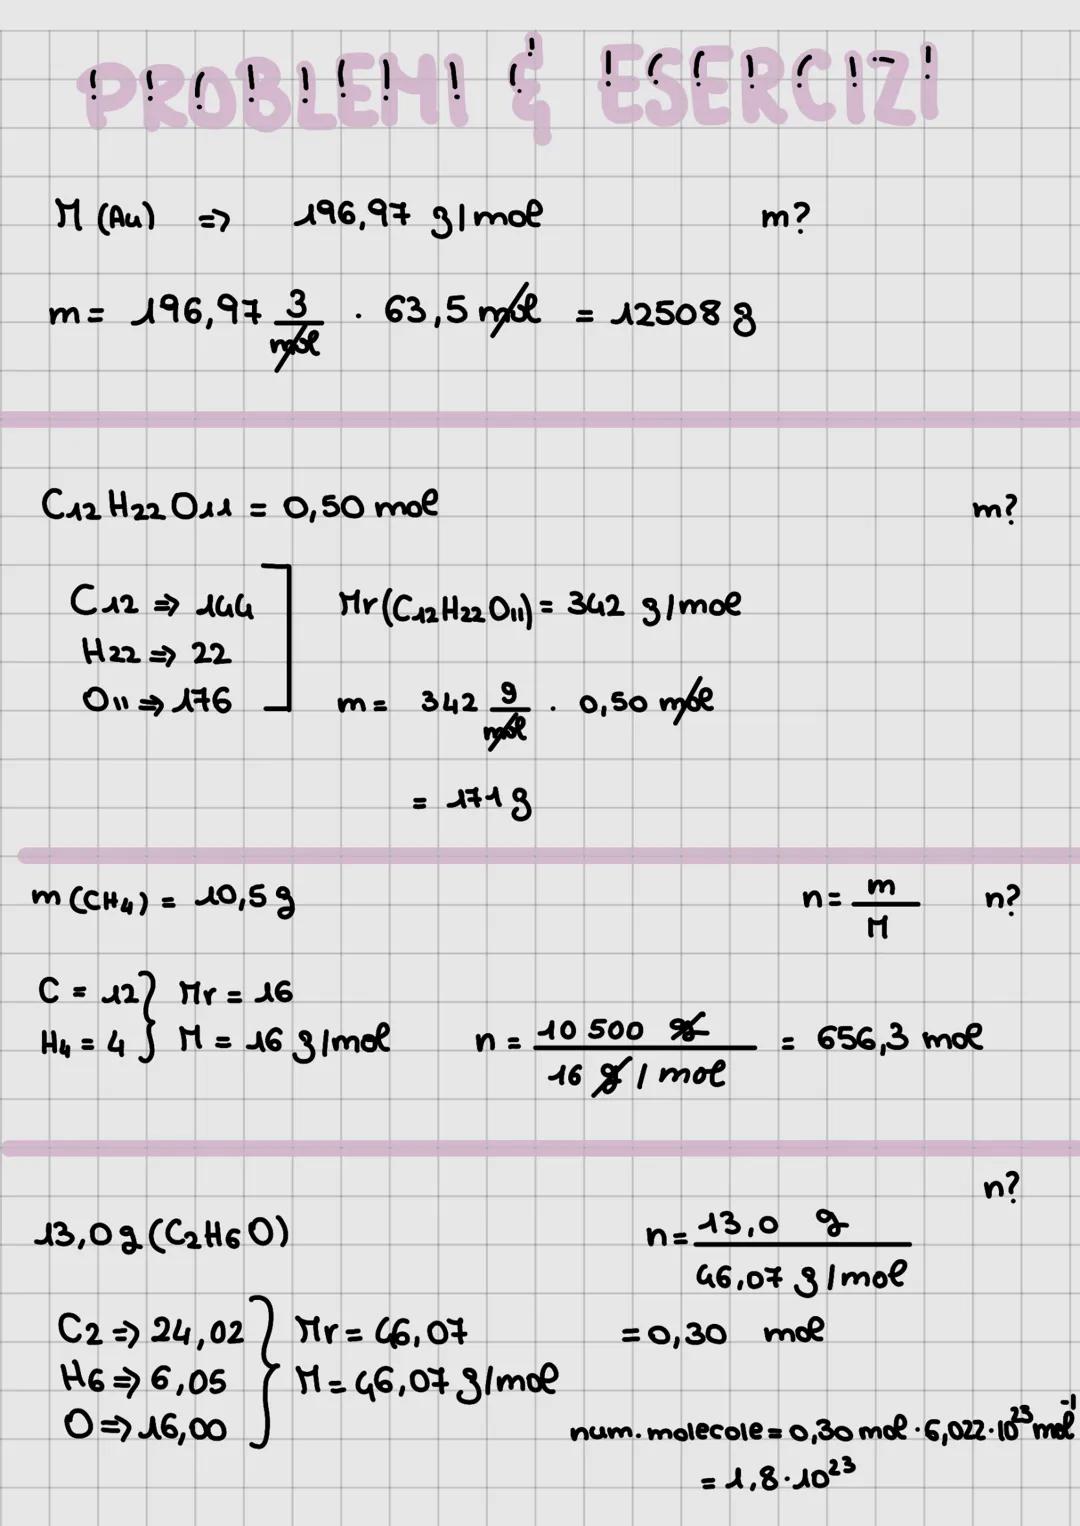 PROBLEMI & ESERCIZI
M (Au) => 196,97 g/mol m?
m = 196,97 g/mol · 63,5 mol = 12508 g
C12 H22 O11 = 0,50 mol m?
C12 => 144
H22 => 22
O11 => 176
Mr (C12H22O11) = 342 g/mol
m = 342 g/mol · 0,50 mol
= 171 g
m (CH4) = 10,5 g n = m/M n?
C = 12 } Mr = 16
H4 = 4 } M = 16 g/mol n = 10 500 g / 16 g/mol = 656,3 mol
n?
13,0 g (C2H6O) n = 13,0 g / 46,07 g/mol
C2 => 24,02 } Mr = 46,07 = 0,30 mol
H6 => 6,05 } M = 46,07 g/mol
O => 16,00
num. molecole = 0,30 mol · 6,022 · 10^23 mol^-1
= 1,8 · 10^23